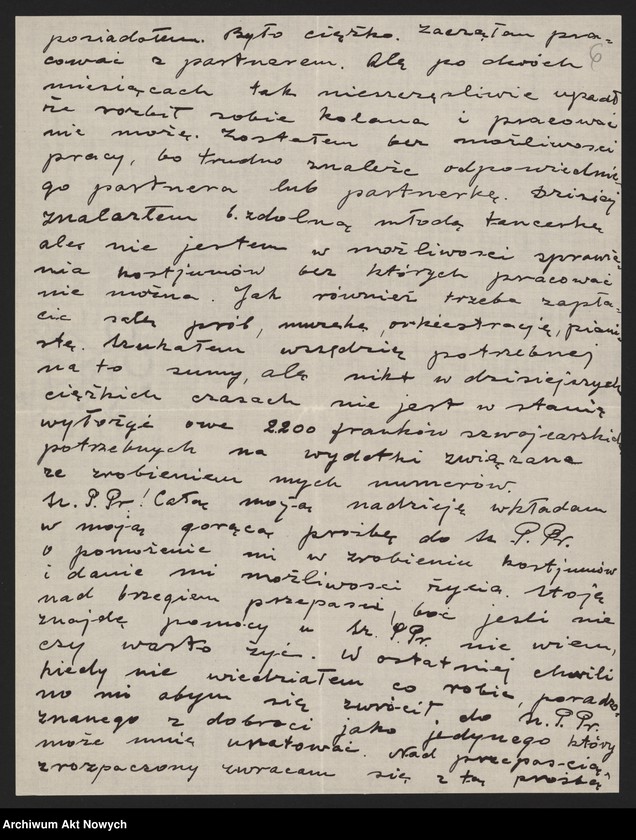 posiadałem. Było ciężko. Zacząłam pra-
6
cować z partnerem. Alę po dwóch
miesiącach tak nieszczęśliwie upadł
że rozbił sobie kolana i pracować
nie możę. Zostałem bez możliwości
pracy, bo trudno znaleźc odpowiednie-
go partnera lub partnerkę. Dzisiaj
znalazłem b. zdolną młodą tancerkę
alę nie jestem w możliwości sprawie-
nia kostjumów bez których pracować
nie można. Jak również trzeba zapła-
cic salę prób, muzykę, orkiestrację, piani-
stę. Szukałem wszędzię potrzebnej
na to sumy, alę nikt w dzisiejszych
ciężkich czasach nie jest w stanię
wyłożyć owe 2200 franków szwajcarskich
potrzebnych na wydatki związane
ze zrobieniem mych numerów.
Sz. P. Pr! Całą moją nadzieję wkładam
w moją gorącą prośbę do Sz. P. Pr.
o pomożenie mi w zrobieniu kostjumów
i danie mi możliwości życia. Stoję
nad brzegiem przepaści, boć jeśli nie
znajdę pomocy u Sz. P. Pr. nie wiem,
czy warto żyć. W ostatniej chwili
kiedy nie wiedziałem co robić, poradzo-
no mi abym się zwrócił do Sz. P. Pr.
znanego z dobroci jako jedynego który
może mnię uratować. Nad przepaścią
zrozpaczony zwracam się z tą prośbą
Archiwum Akt Nowych